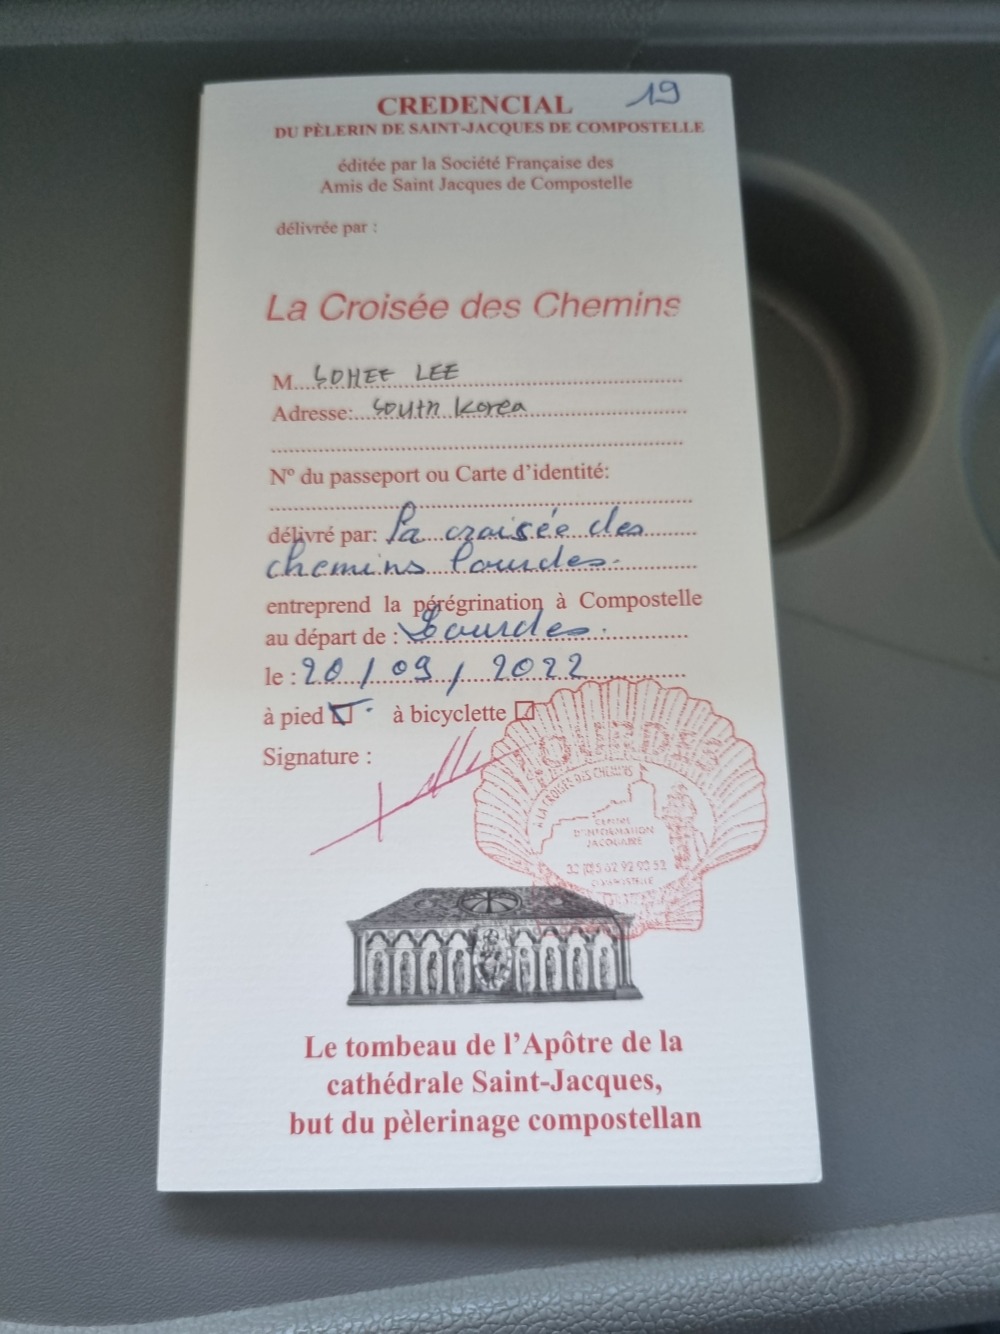 CREDENCIAL 19
DU PÈLERIN DE SAINT-JACQUES DE COMPOSTELLE
éditée par la Société Française des
Amis de Saint Jacques de Compostelle
délivrée par :
La Croisée des Chemins
M. SOHEE LEE
Adresse: South Korea
N° du passeport ou Carte d'identité:
délivré par: La croisée des
chemins Lourdes.
entreprend la pérégrination à Compostelle
au départ de : Lourdes.
le : 20/09/2022
à pied à bicyclette
Signature :
LOURDES
A LA CROISEE DES CHEMINS
CENTRE
D'INFORMATION
JACQUAIRE
COMPOSTELLE
Le tombeau de l'Apôtre de la
cathédrale Saint-Jacques,
but du pèlerinage compostellan